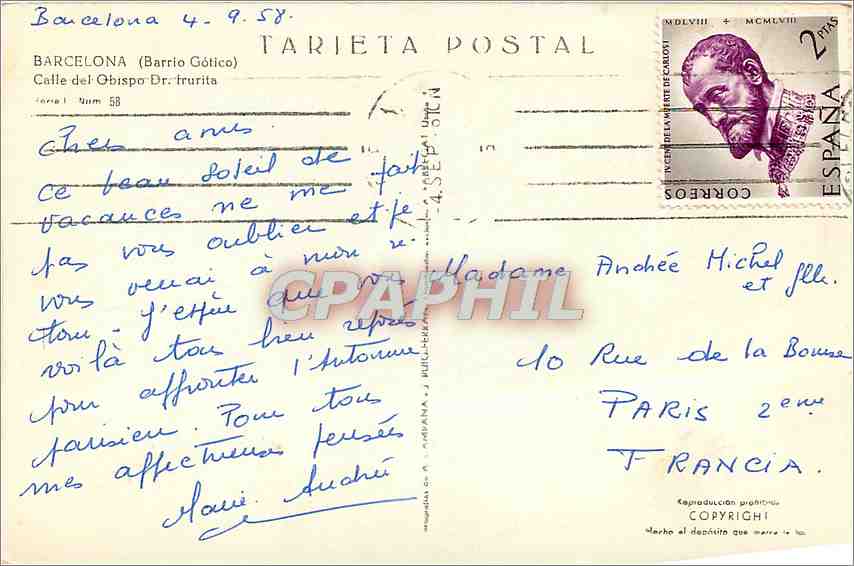 Barcelona 4-9.58.
TARJETA POSTAL
BARCELONA (Barrio Gótico)
Calle del Obispo Dr. Irurita
Serie I Núm 58
MDLVIII + MCMLVIII
2 PTAS
IV CENT. DE LA MUERTE DE CARLOS I
CORREOS
ESPAÑA
-4.SEP.
Chers amis
ce beau soleil de
vacances ne me fait
pas vous oublier et je
vous verrai à mon re-
tour - J'espère que vous
voilà tous bien reposés
pour affronter l'Automne
parisien. Pour tous
mes affectueuses pensées
Marie Andrée
CPAPHIL
Madame Andrée Michel
et flle.
10 Rue de la Bourse
PARIS 2eme
FRANCIA.
Reproducción prohibida
COPYRIGHT
Hecho el depósito que marca la ley